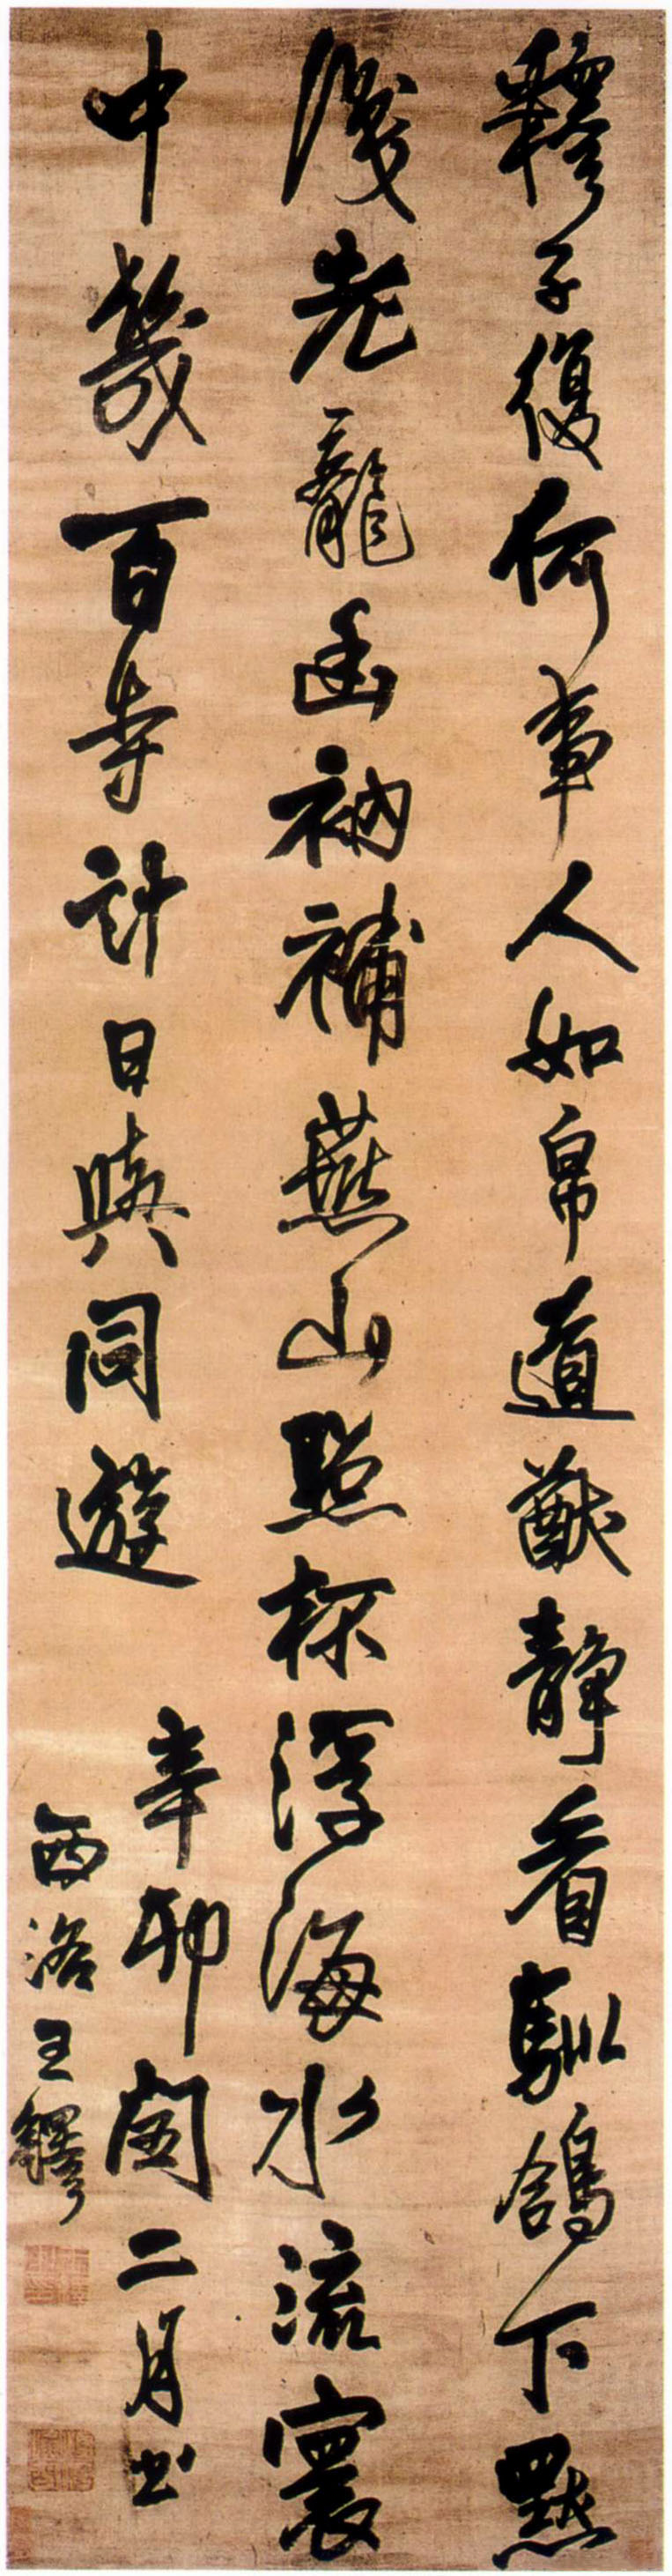 釋子復何事人如帛道猷靜看馴鴿下默
識老龍幽衲補燕山照杯浮海水流寰
中幾百寺計日與同遊 辛卯閏二月書
西洛王鐸